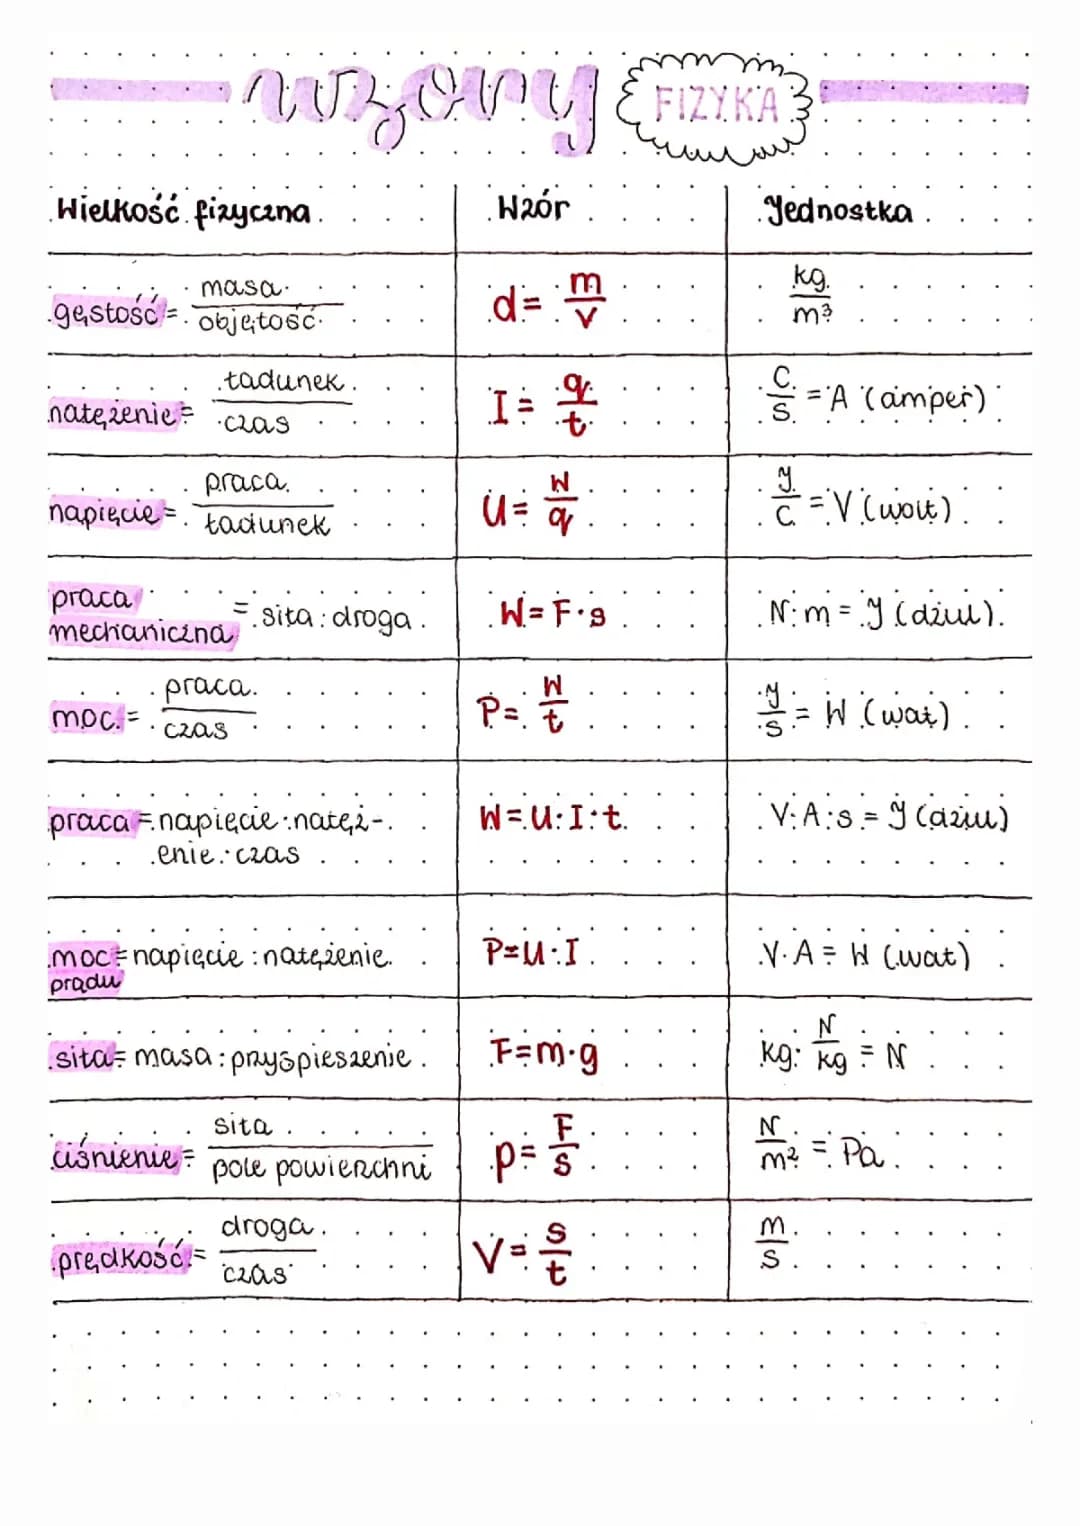 wzory FIZYKA
Wielkość fizyczna Wzór Jednostka
gęstość = masa / objętość d = m / V kg / m³
natężenie = ładunek / czas I = q / t C / s = A (amper)
napięcie = praca / ładunek U = W / q J / C = V (wolt)
praca mechaniczna = siła · droga W = F · s N · m = J (dżul)
moc = praca / czas P = W / t J / s = W (wat)
praca = napięcie · natęż-
enie · czas W = U · I · t V · A · s = J (dżul)
moc prądu = napięcie · natężenie P = U · I V · A = W (wat)
siła = masa · przyśpieszenie F = m · g kg · N / kg = N
ciśnienie = siła / pole powierzchni p = F / s N / m² = Pa
prędkość = droga / czas V = s / t m / s